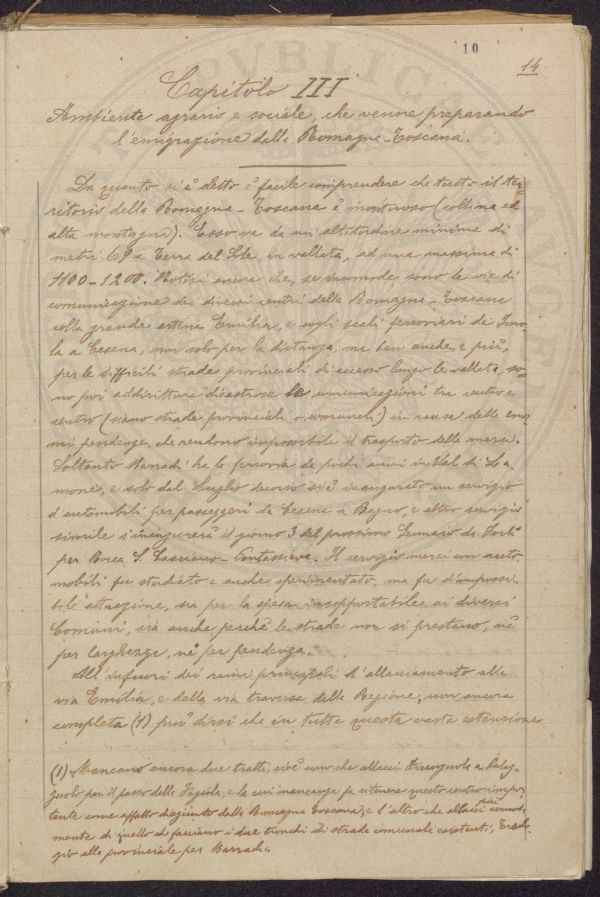 10
14
Capitolo III
Ambiente agrario e sociale, che venne preparando
l'emigrazione dalla Romagna-Toscana.
Da quanto si è detto è facile comprendere che tutto il ter-
ritorio della Romagna-Toscana è montuoso (collina ed
alta montagna). Esso va da un'altitudine minima di
metri 69 a Terra del Sole, in vallata, ad una massima di
1100-1200. Notisi ancora che, se incomode sono le vie di
comunicazione dei diversi centri della Romagna-Toscana
colla grande arteria Emilia, e cogli scali ferroviari da Imo-
la a Cesena, non solo per la distanza, ma ben anche, e più,
per le difficili strade provinciali di accesso lungo le vallate, so-
no poi addirittura disastrose le comunicazioni tra centro e
centro (siano strade provinciali o comunali) in causa delle enor-
mi pendenze, che rendono impossibile il trasporto delle merci.
Soltanto Marradi ha la ferrovia da pochi anni in Val di La-
mone, e solo dal Luglio decorso si è inaugurato un servizio
d'automobili per passeggeri da Cesena a Bagno, e altro servizio
simile s'inaugurerà il giorno 3 del prossimo Gennaio da Forlì
per Rocca S. Casciano-Pontassieve. Il servizio merci con auto-
mobili fu studiato e anche sperimentato, ma fu d'impossi-
bile attuazione, sia per la spesa insopportabile ai diversi
Comuni, sia anche perchè le strade non si prestano, nè
per larghezza, nè per pendenza.
All'infuori dei rami principali d'allacciamento alla
via Emilia, e della via traversa della Regione, non ancora
completa (1) può dirsi che in tutta questa vasta estensione
(1) Mancano ancora due tratti, cioè uno che allacci Firenzuola a Palaz-
zuolo per il passo della Faggiola, e la cui mancanza fa ritenere questo centro impor-
tante come affatto disgiunto dalla Romagna Toscana; e l'altro che allacci più comoda-
mente di quello che facciano i due tronchi di strade comunali esistenti,
alla provinciale per Marradi.